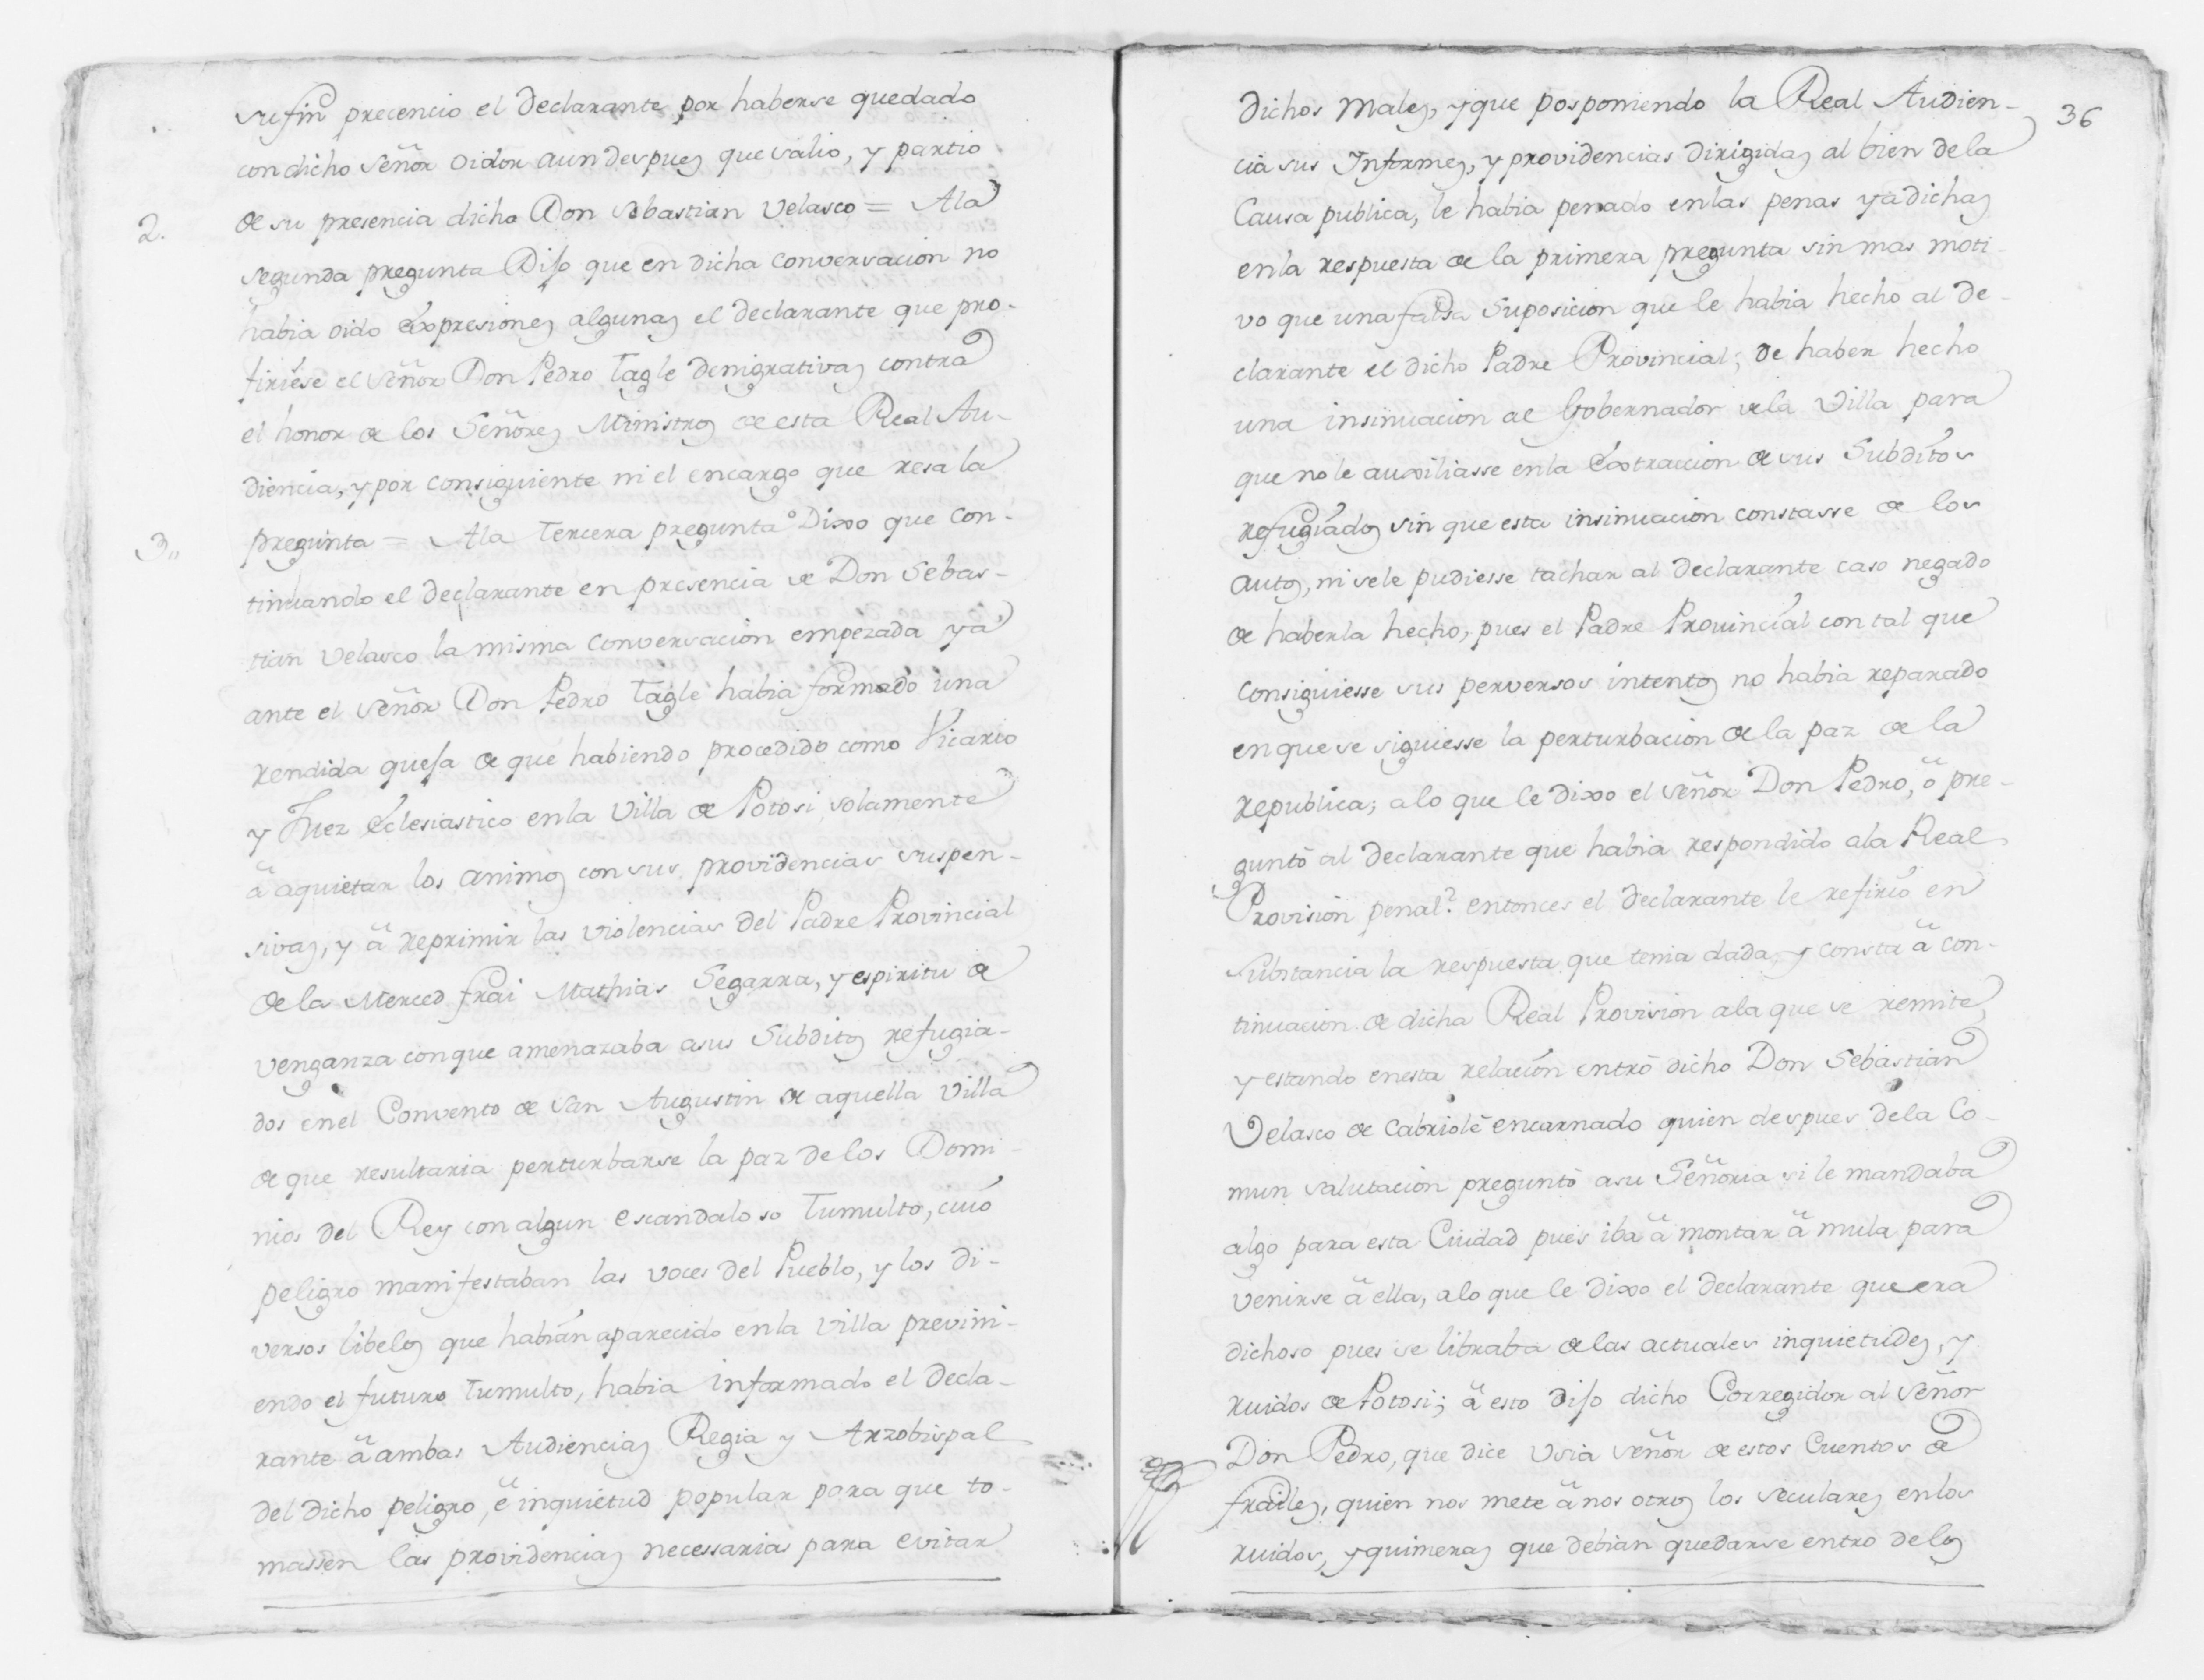 su fin precencio el declarante por haberse quedado
con dicho Señor Oidor aun despues que salio, y partio
2. de su presencia dicho Don Sebastian Velasco = Ala
segunda pregunta Dijo que en dicha conversacion no
habia oido expresiones algunas el declarante que pro-
firiese el Señor Don Pedro Tagle denigrativas contra
el honor de los Señores Ministros de esta Real Au-
diencia, y por consiguiente ni el encargo que resa la
3,, pregunta = Ala Tercera pregunta Dixo que con-
tinuando el declarante en presencia de Don Sebas-
tian Velasco la misma conversacion empezada ya
ante el Señor Don Pedro Tagle habia formado una
rendida quesa de que habiendo procedido como Vicario
y Juez Eclesiastico enla Villa de Potosi solamente
â aquietar los animos con sus providencias suspen-
sivas, y â reprimir las violencias del Padre Provincial
de la Merced frai Mathias Segarra, y espiritu de
venganza conque amenazaba asus Subditos refugia-
dos enel Convento de San Augustin de aquella Villa
de que resultaria perturbarse la paz de los Domi-
nios del Rey con algun escandaloso Tumulto, cuio
peligro manifestaban las voces del Pueblo, y los di-
versos libelos que habian aparecido enla Villa previni-
endo el futuro Tumulto, habia informado el decla-
rante â ambas Audiencias Regia y Arzobispal
del dicho peligro, ê inquietud popular para que to-
massen las providencias necessarias para evitar
36
dichos males, y que posponiendo la Real Audien-
cia sus Informes, y providencias dirigidas al bien dela
Causa publica, le habia penado enlas penas ya dichas
enla respuesta de la primera pregunta sin mas moti-
vo que una falsa suposicion que le habia hecho al de-
clarante el dicho Padre Provincial; de haber hecho
una insinuacion al Gobernador dela Villa para
que no le auxiliasse enla Extraccion de sus Subditos
refugiados sin que esta insinuacion constasse de los
autos, ni sele pudiesse tachar al declarante caso negado
de haberla hecho, pues el Padre Provincial con tal que
consiguiesse sus perversos intentos no habia reparado
en que se siguiesse la perturbacion de la paz de la
republica; a lo que le dixo el Señor Don Pedro, ô pre-
guntô al declarante que habia respondido ala Real
Provision penal? entonces el declarante le refirio en
substancia la respuesta que tenia dada, y consta â con-
tinuacion de dicha Real Provision ala que se remite,
y estando enesta relacion entrô dicho Don Sebastian
Velasco de Cabriolê encarnado quien despues dela Co-
mun salutacion preguntô asu Señoria si le mandaba
algo para esta Ciudad pues iba â montar â mula para
venirse â ella, a lo que le dixo el declarante que era
dichoso pues se libraba de las actuales inquietudes, y
ruidos de Potosi; â esto dijo dicho Corregidor al Señor
Don Pedro, que dice Usia Señor de estos Cuentos de
frailes, quien nos mete â nosotros los seculares enlos
ruidos, y quimeras que debian quedarse entro delos